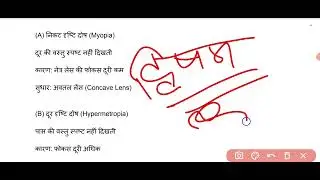 (A) निकट दृष्टि दोष (Myopia)
दूर की वस्तु स्पष्ट नहीं दिखती
कारण: नेत्र लेंस की फोकस दूरी कम
सुधार: अवतल लेंस (Concave Lens)
(B) दूर दृष्टि दोष (Hypermetropia)
पास की वस्तु स्पष्ट नहीं दिखती
कारण: फोकस दूरी अधिक